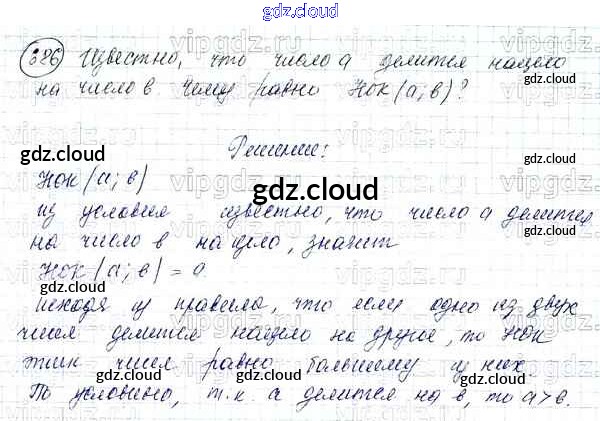 gdz.cloud
386 Известно, что число a делится нацело
gdz.cloud
на число в. Чему равно НОК(а; в)?
gdz.cloud
Решение:
gdz.cloud
НОК(а; в)
gdz.cloud
из условия известно, что число а делится
на число в нацело, значит
gdz.cloud
НОК(а; в) = а
исходя из правила, что если одно из двух
чисел делится нацело на другое, то НОК
этих чисел равно большему из них
По условию, т.к. а делится на в, то а>в.
gdz.cloud
gdz.cloud